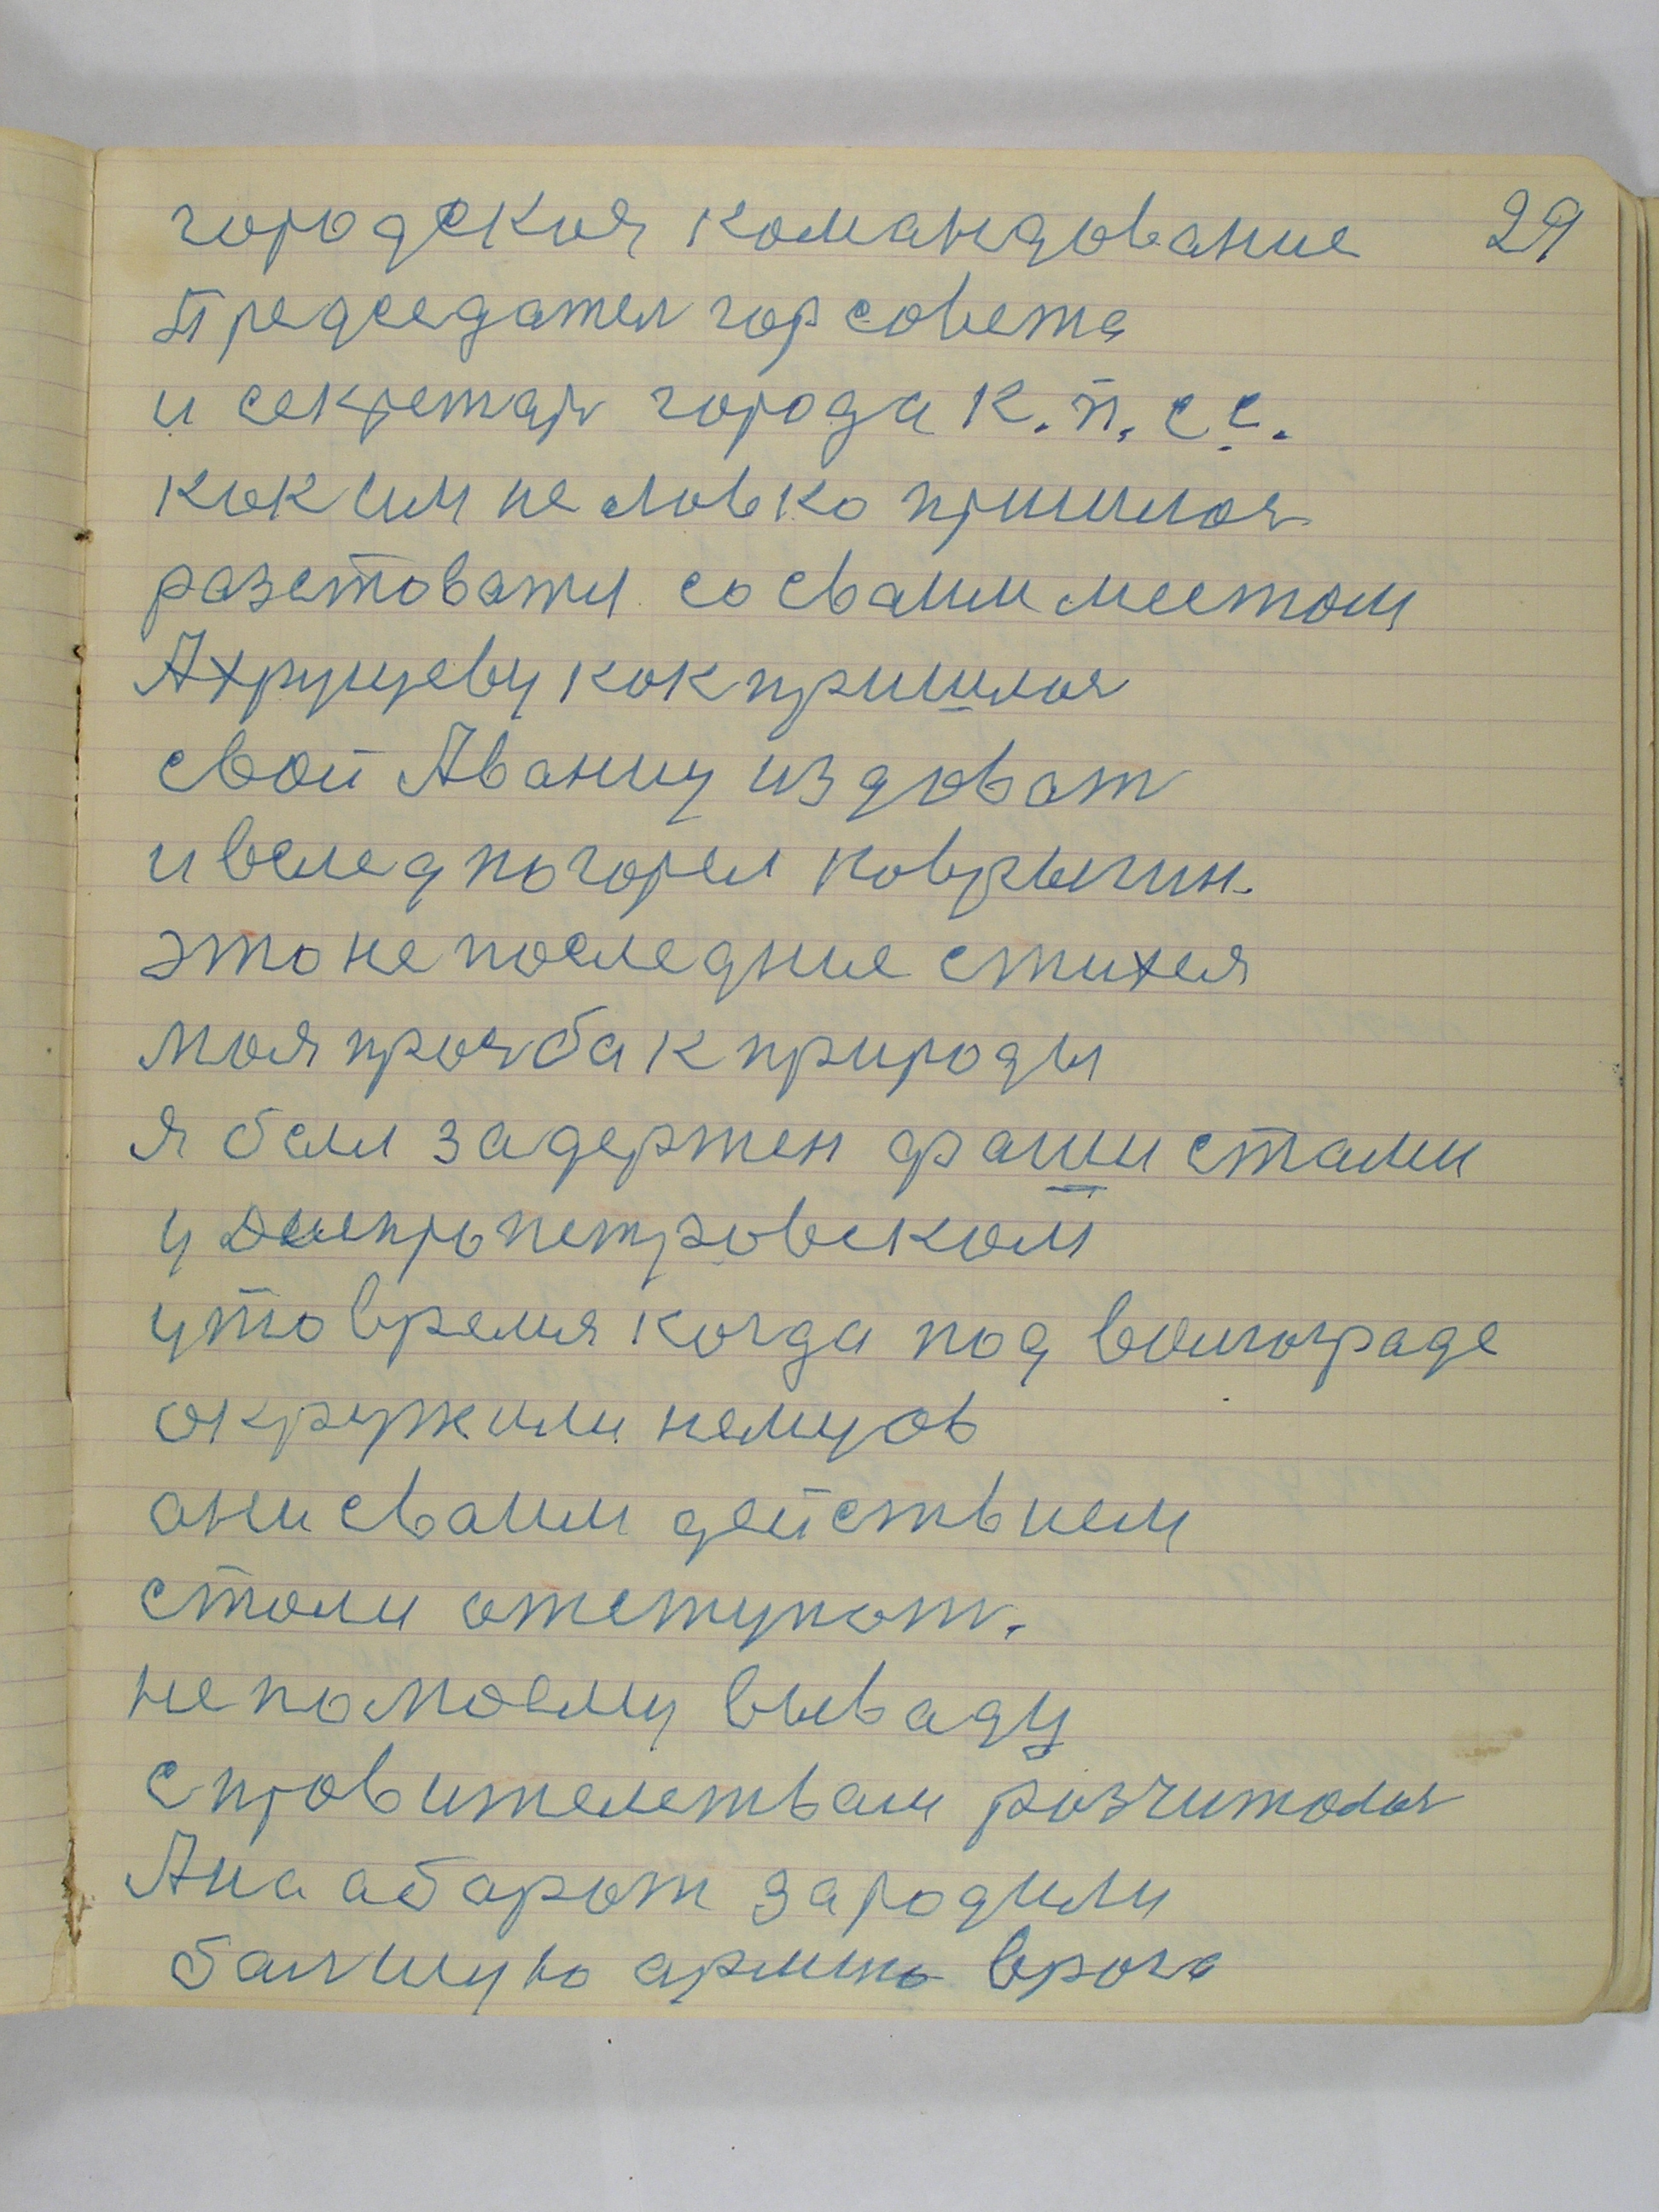 городская командование 29
Председател горсовета
и секретар города к.п.с.с.
как им не ловко пришлося
разставатя со сваим местом
А хрущеву как пришлося
свой Аванцу издават
и вслед погорел
это не последние стихея
моя прозба к природы
я бел задержен фашистами
у Днепропетровском
у то время когда под волгограде
окружили немцов
они сваим действием
стали отступат.
не по моему вываду
с правителетвам розчиталя
А на абарот зародили
балшую армию врага